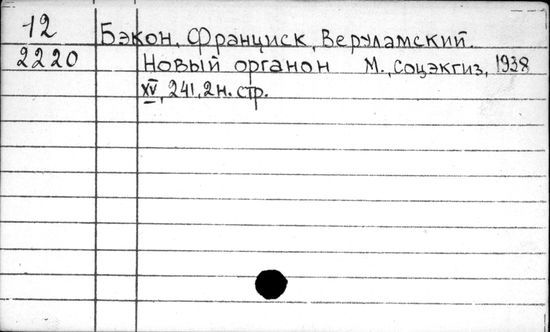 12
2220
Бэкон, Франциск, Веруламский.
Новый органон М., Соцэкгиз, 1938
XV, 241, 2 н. стр.